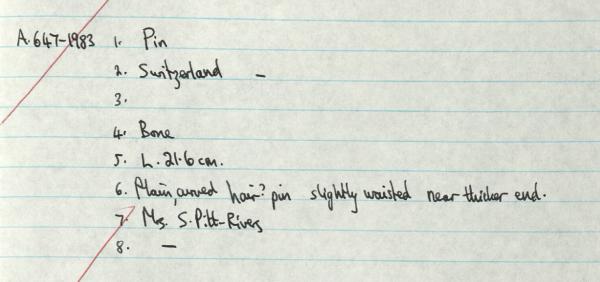 A.647-1983 1. Pin
2. Switzerland –
3.
4. Bone
5. L. 21.6 cm.
6. Plain, curved hair? pin slightly waisted near thicker end.
7. Mrs. S. Pitt-Rivers
8. –